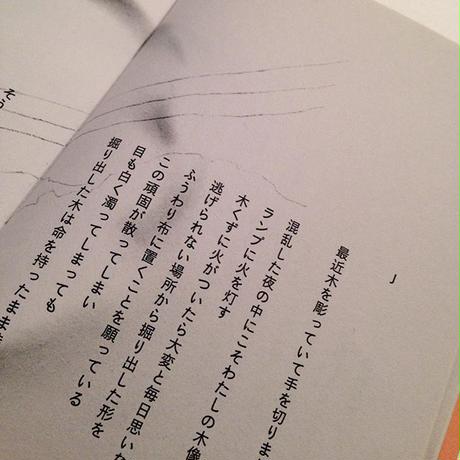 J
最近木を彫っていて手を切りま
混乱した夜の中にこそわたしの木像
ランプに火を灯す
木くずに火がついたら大変と毎日思いな
逃げられない場所から掘り出した形を
ふうわり布に置くことを願っている
この頑固が散ってしまい
目も白く濁ってしまっても
掘り出した木は命を持ったまま
そう